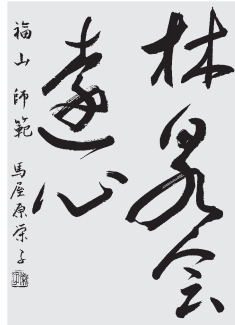 林泉会
遠心
福山 師範 馬屋原栄子